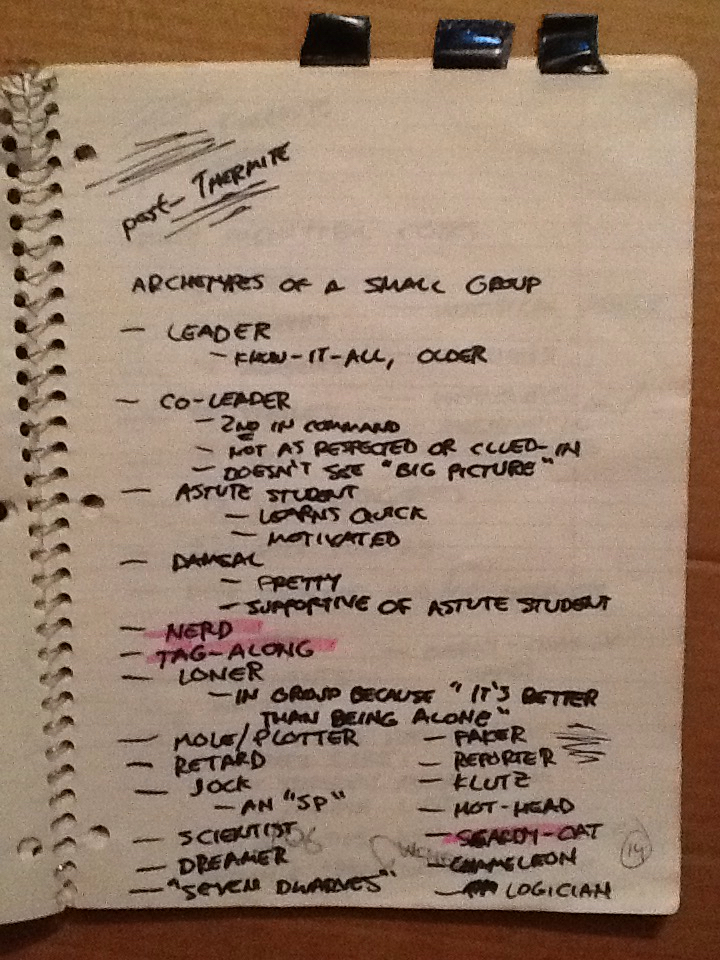 post- THERMITE
ARCHETYPES OF A SMALL GROUP
— LEADER
- KNOW-IT-ALL, OLDER
— CO-LEADER
- 2ND IN COMMAND
- NOT AS RESPECTED OR CLUED-IN
- DOESN'T SEE "BIG PICTURE"
— ASTUTE STUDENT
- LEARNS QUICK
- MOTIVATED
— DAMSAL
- PRETTY
- SUPPORTIVE OF ASTUTE STUDENT
— NERD
— TAG-ALONG
— LONER
- IN GROUP BECAUSE "IT'S BETTER
THAN BEING ALONE"
— MOLE/PLOTTER
— RETARD
— JOCK
- AN "SP"
— SCIENTIST
— DREAMER
— "SEVEN DWARVES"
— FAKER
— REPORTER
— KLUTZ
— HOT-HEAD
— SCARDY-CAT
— CHAMELEON
— LOGICIAN
14